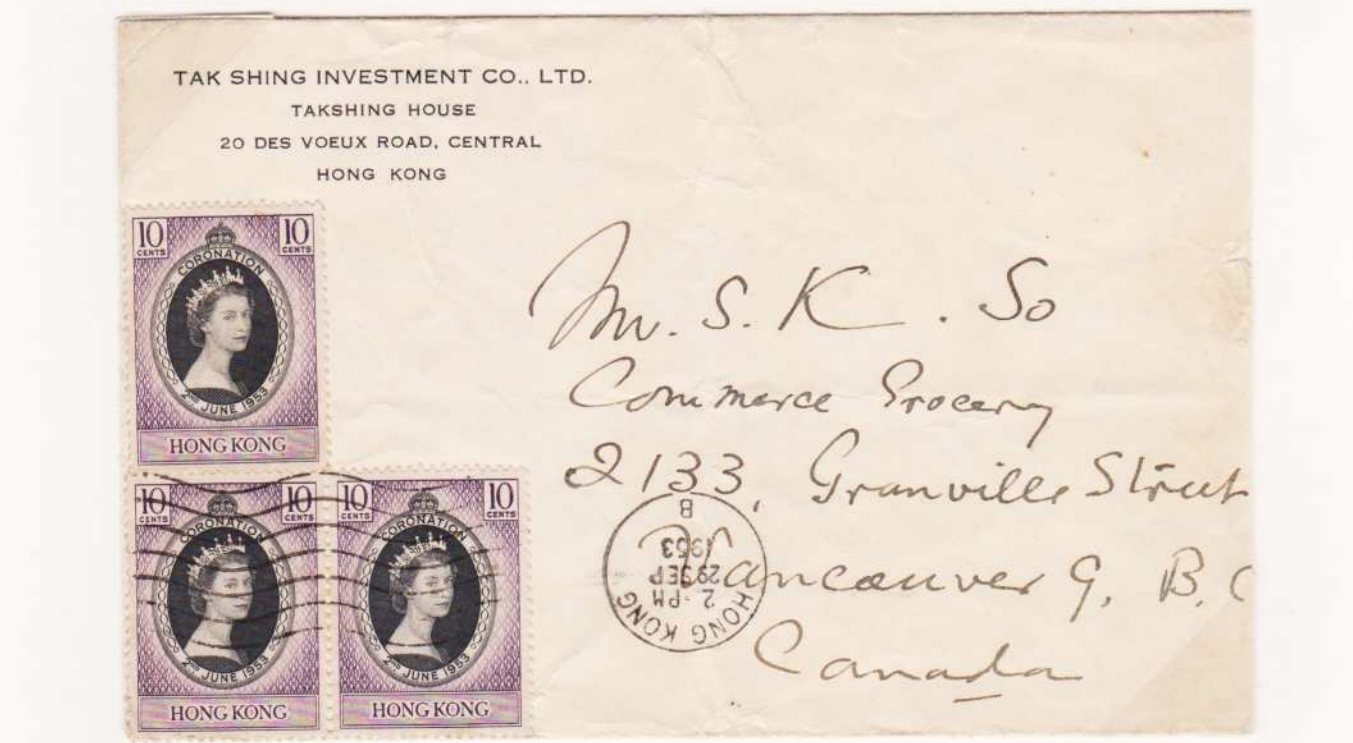 TAK SHING INVESTMENT CO., LTD.
TAKSHING HOUSE
20 DES VOEUX ROAD, CENTRAL
HONG KONG
10 CENTS 10 CENTS
CORONATION
2ND JUNE 1953
HONG KONG
10 CENTS 10 CENTS
CORONATION
2ND JUNE 1953
HONG KONG
10 CENTS 10 CENTS
CORONATION
2ND JUNE 1953
HONG KONG
Mr. S. K. So
Commerce Grocery
2133, Granville Street
Vancouver 9, B. C
Canada
HONG KONG
2-PM
29 SEP
1953
B